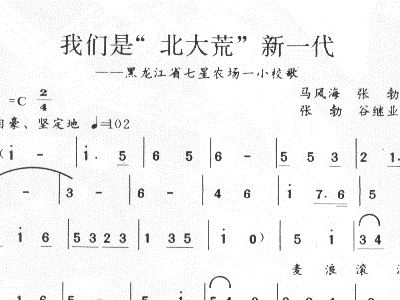 我们是“北大荒”新一代
——黑龙江省七星农场一小校歌
=C 2/4 马风海 张 勃
豪、坚定地 ♩=102 张 勃 谷继业
(i - | i. 5 | 6 5 | 6 - | 5 5 3 | 2 1.
- | 3 - | 6 - | 4 6 | i 7. 6 | 5
i 6 | 5 3 2 3 | 5 3 2 3 | 5 5 | i 0) | 5 i | 3 4
麦 浪 滚